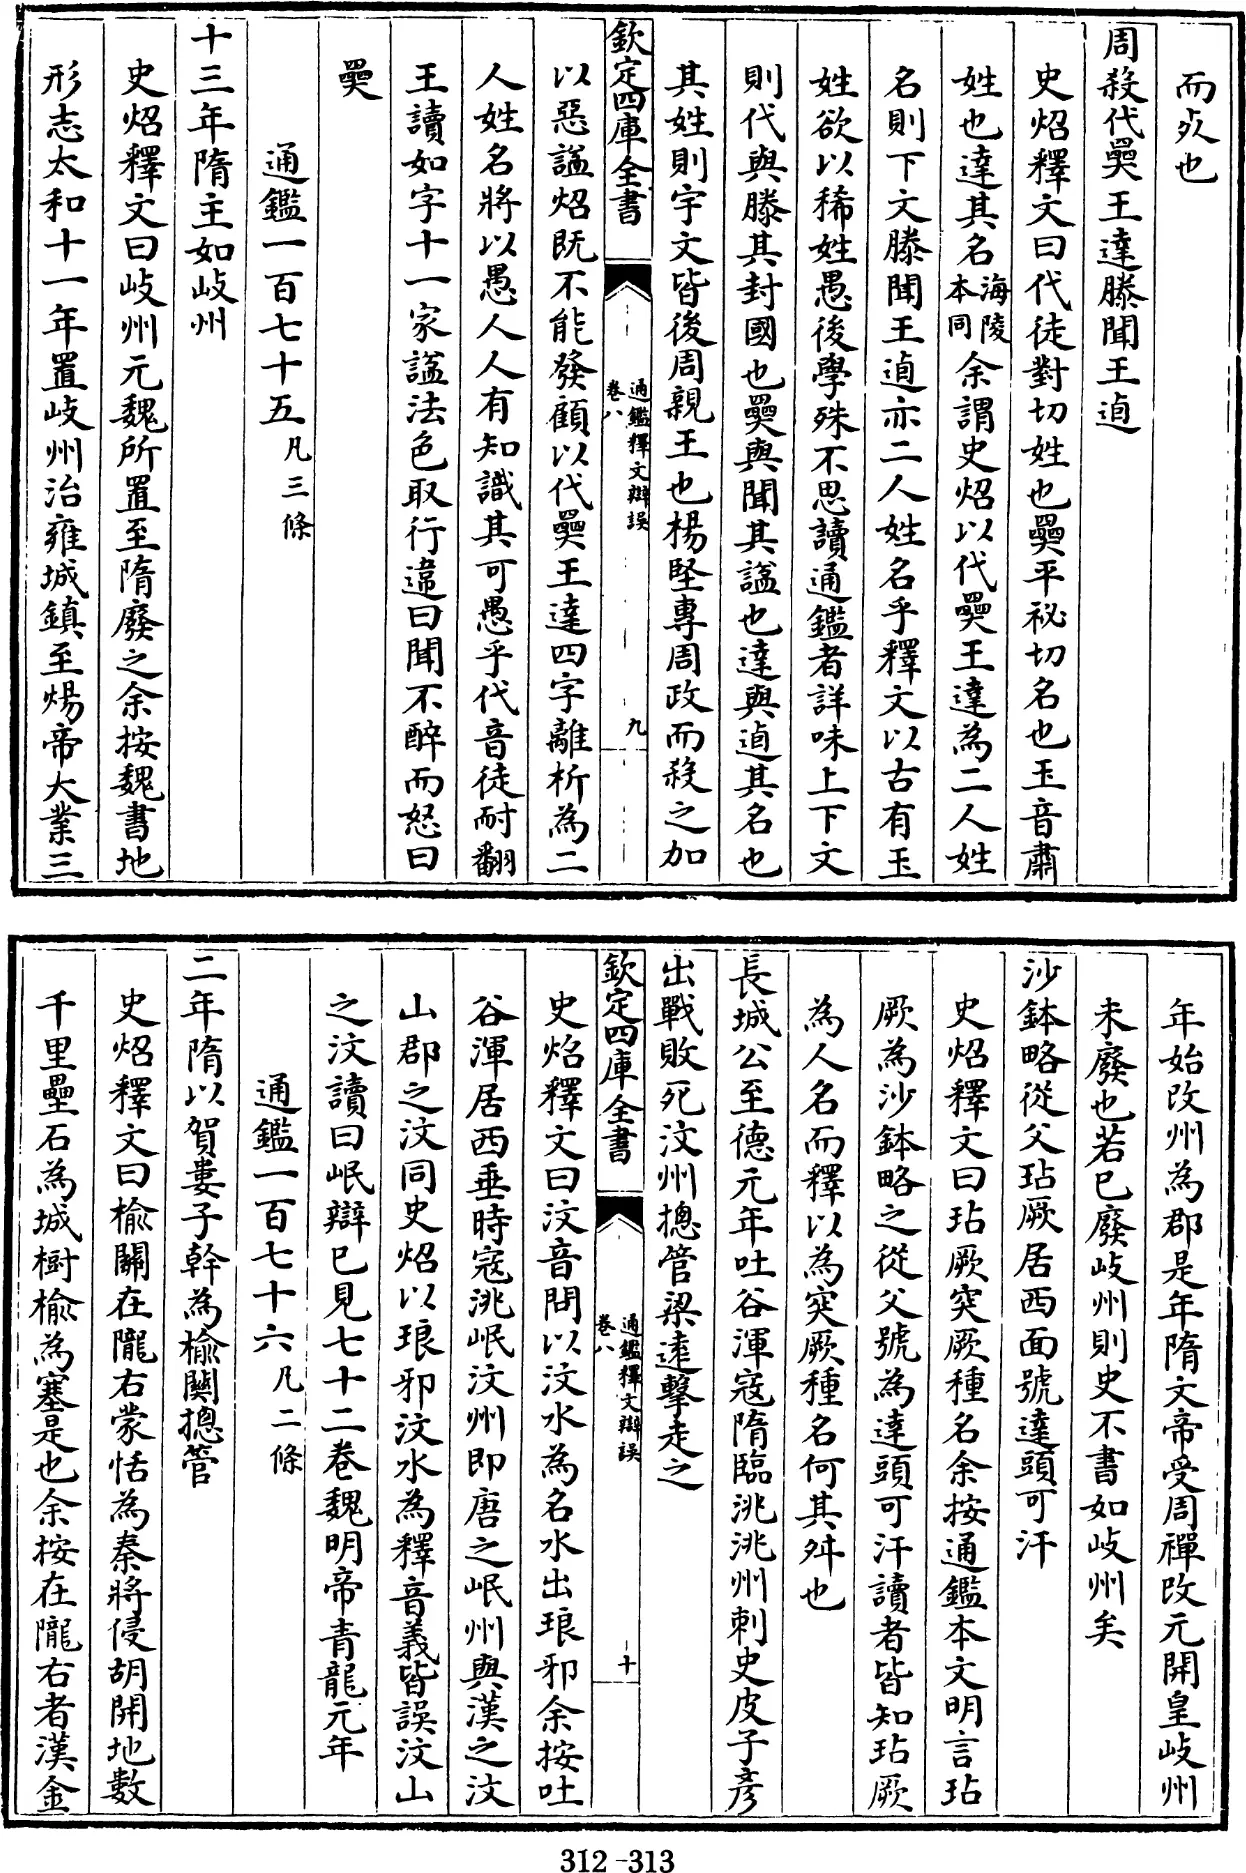 而死也
周殺代奰王達滕聞王逌
史炤釋文曰代徒對切姓也奰平祕切名也玉音肅
姓也達其名海陵本同余謂史炤以代奰王達為二人姓
名則下文滕聞王逌亦二人姓名乎釋文以古有玉
姓欲以稀姓愚後學殊不思讀通鑑者詳味上下文
則代與滕其封國也奰與聞其諡也達與逌其名也
其姓則宇文皆後周親王也楊堅專周政而殺之加
欽定四庫全書
通鑑釋文辯誤
卷八
九
以惡諡炤既不能發顧以代奰王達四字離析為二
人姓名將以愚人人有知識其可愚乎代音徒耐翻
王讀如字十一家諡法色取行違曰聞不醉而怒曰
奰
通鑑一百七十五凡三條
十三年隋主如岐州
史炤釋文曰岐州元魏所置至隋廢之余按魏書地
形志太和十一年置岐州治雍城鎮至煬帝大業三
年始改州為郡是年隋文帝受周禪改元開皇岐州
未廢也若已廢岐州則史不書如岐州矣
沙鉢略從父玷厥居西面號達頭可汗
史炤釋文曰玷厥突厥種名余按通鑑本文明言玷
厥為沙鉢略之從父號為達頭可汗讀者皆知玷厥
為人名而釋以為突厥種名何其舛也
長城公至德元年吐谷渾寇隋臨洮洮州刺史皮子彥
出戰敗死汶州摠管梁遠擊走之
欽定四庫全書
通鑑釋文辯誤
卷八
十
史炤釋文曰汶音問以汶水為名水出琅邪余按吐
谷渾居西垂時寇洮岷汶州即唐之岷州與漢之汶
山郡之汶同史炤以琅邪汶水為釋音義皆誤汶山
之汶讀曰岷辯已見七十二卷魏明帝青龍元年
通鑑一百七十六凡二條
二年隋以賀婁子幹為榆關摠管
史炤釋文曰榆關在隴右蒙恬為秦將侵胡開地數
千里壘石為城樹榆為塞是也余按在隴右者漢金
312-313